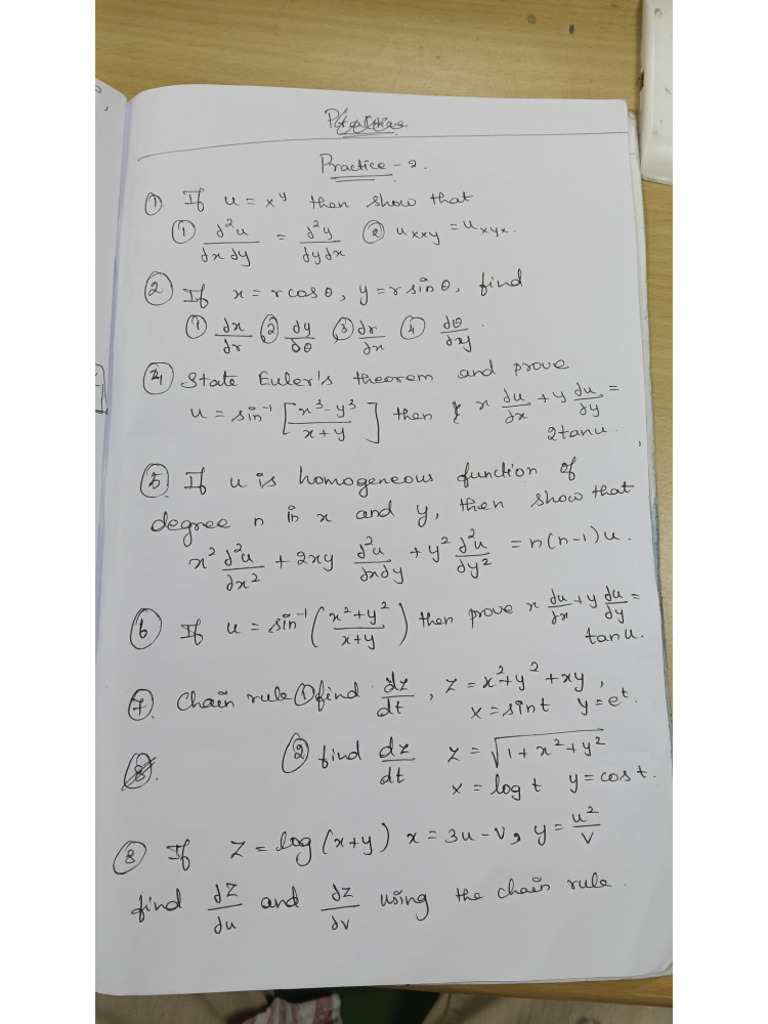 Practice - 2.
① If u = x^y then show that
① ∂²u/∂x∂y = ∂²y/∂y∂x ② u_xxy = u_xyx.
② If x = r cosθ, y = r sinθ, find
① ∂x/∂r ② ∂y/∂θ ③ ∂r/∂x ④ ∂θ/∂xy.
④ State Euler's theorem and prove
u = sin⁻¹ [x³ - y³ / x + y] then x ∂u/∂x + y ∂u/∂y =
2tanu.
⑤ If u is homogeneous function of
degree n in x and y, then show that
x² ∂²u/∂x² + 2xy ∂²u/∂x∂y + y² ∂²u/∂y² = n(n-1)u.
⑥ If u = sin⁻¹ (x² + y² / x + y) then prove x ∂u/∂x + y ∂u/∂y =
tanu.
⑦. Chain rule ① find dz/dt, z = x² + y² + xy,
x = sint y = e^t.
② find dz/dt z = √(1 + x² + y²)
x = log t y = cos t.
⑧ If z = log(x+y) x = 3u - v, y = u²/v
find ∂z/∂u and ∂z/∂v using the chain rule.